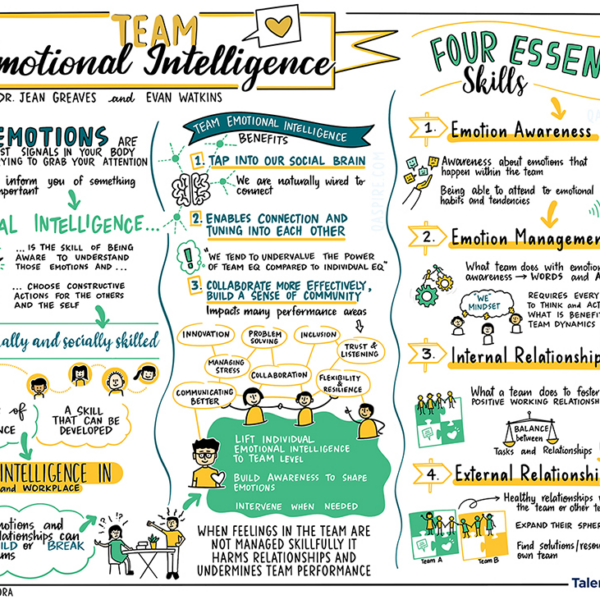 TEAM
motional Intelligence
DR. JEAN GREAVES and EVAN WATKINS
EMOTIONS ARE
ST SIGNALS IN YOUR BODY
YING TO GRAB YOUR ATTENTION
inform you of something
portant
AL INTELLIGENCE...
... IS THE SKILL OF BEING
AWARE TO UNDERSTAND
THOSE EMOTIONS AND ...
... CHOOSE CONSTRUCTIVE
ACTIONS FOR THE OTHERS
AND THE SELF
nally and socially skilled
of
NCE
A SKILL
THAT CAN BE
DEVELOPED
INTELLIGENCE IN
and WORKPLACE
motions and
lationships can
ILD or BREAK
ms
ORA
TEAM EMOTIONAL INTELLIGENCE
BENEFITS
1. TAP INTO OUR SOCIAL BRAIN
We are naturally wired to
connect
2. ENABLES CONNECTION AND
TUNING INTO EACH OTHER
"WE TEND TO UNDERVALUE THE POWER
OF TEAM EQ COMPARED TO INDIVIDUAL EQ"
3. COLLABORATE MORE EFFECTIVELY,
BUILD A SENSE OF COMMUNITY
Impacts many performance areas
INNOVATION
PROBLEM
SOLVING
INCLUSION
TRUST &
LISTENING
MANAGING
STRESS
COLLABORATION
FLEXIBILITY
&
RESILIENCE
COMMUNICATING
BETTER
LIFT INDIVIDUAL
EMOTIONAL INTELLIGENCE
TO TEAM LEVEL
BUILD AWARENESS TO SHAPE
EMOTIONS
INTERVENE WHEN NEEDED
WHEN FEELINGS IN THE TEAM ARE
NOT MANAGED SKILLFULLY IT
HARMS RELATIONSHIPS AND
UNDERMINES TEAM PERFORMANCE
FOUR ESSEN
Skills
1. Emotion Awareness
Awareness about emotions that
happen within the team
Being able to attend to emotional
habits and tendencies
2. Emotion Managemen
What team does with emotion
awareness → WORDS and A
"WE"
MINDSET
REQUIRES EVERY
TO THINK and ACT
WHAT IS BENEFI
TEAM DYNAMICS
3. Internal Relationship
What a team does to foster
POSITIVE WORKING RELATIONSH
BALANCE
between
Tasks and Relationships
4. External Relationshi
Healthy relationships w
the team or other te
EXPAND THEIR SPHER
Find solutions/resou
own team
Team A
Team B
Talen